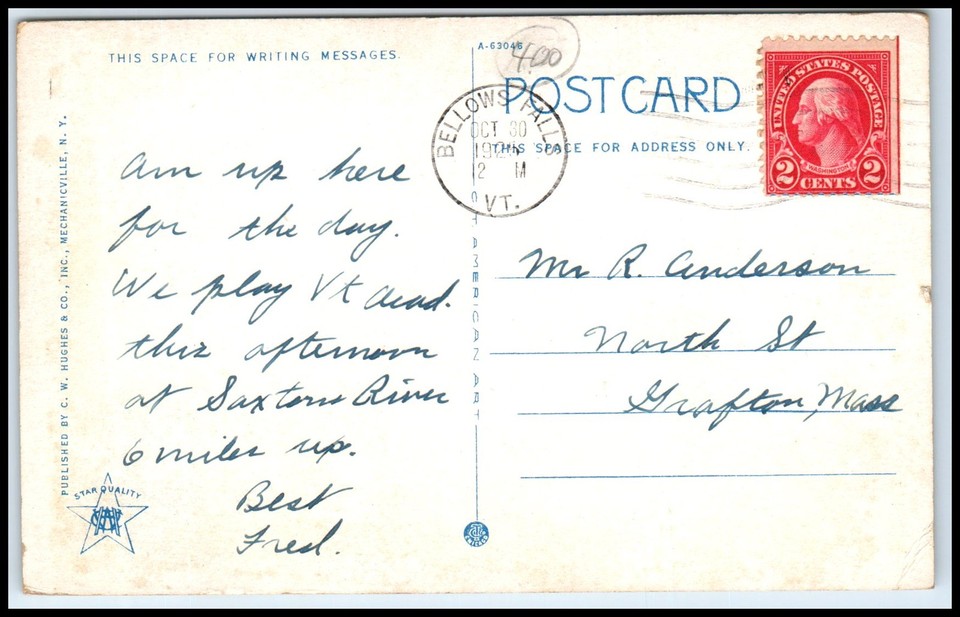 THIS SPACE FOR WRITING MESSAGES.
Am up here
for the day.
We play Vt Acad.
this afternoon
at Saxtons River
6 miles up.
Best
Fred.
PUBLISHED BY C. W. HUGHES & CO., INC., MECHANICVILLE, N. Y.
STAR QUALITY
A-63046
400
POST CARD
THIS SPACE FOR ADDRESS ONLY.
BELLOWS FALLS
OCT 30
2 M
VT.
UNITED STATES POSTAGE
WASHINGTON
2 CENTS 2
AMERICAN ART
Mr R. Anderson
North St
Grafton, Mass